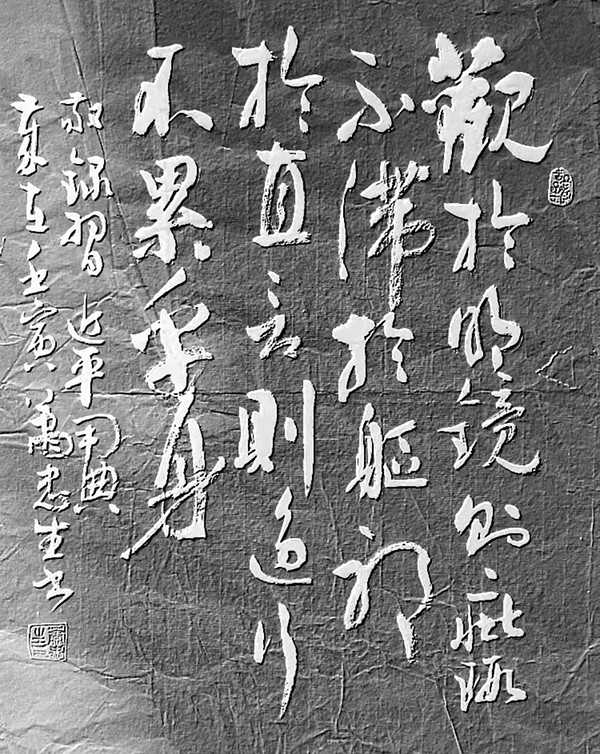 觀於明鏡則疵瑕
不滯於軀聽
於直言則過行
不累乎身
敬錄習近平用典
歲在壬寅蕭忠生書